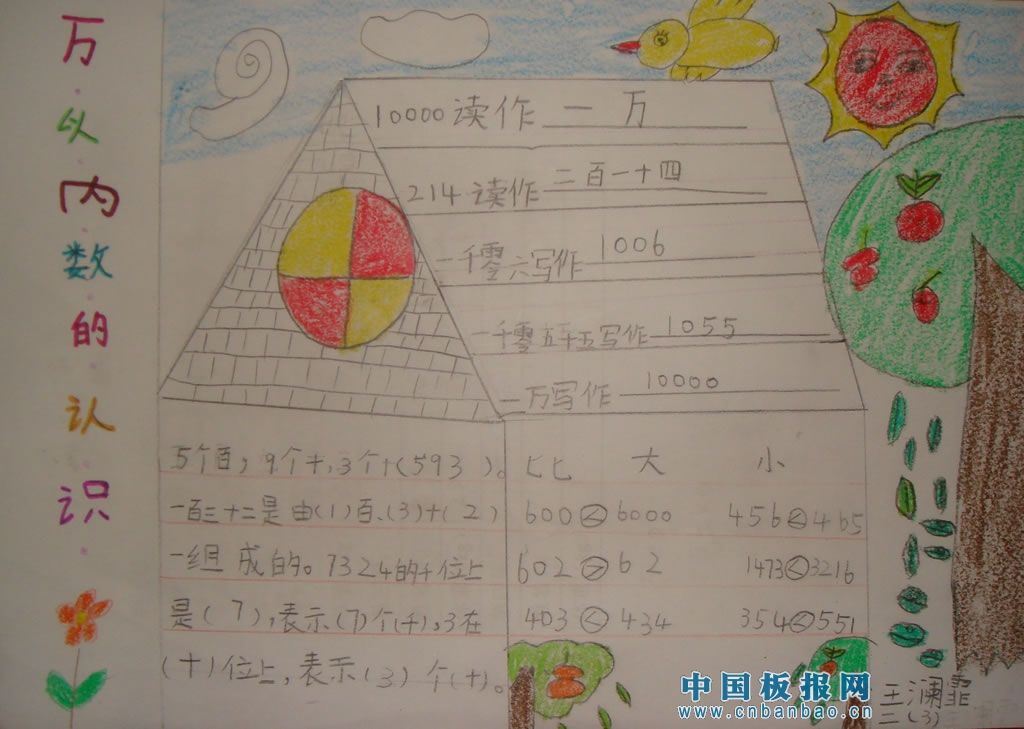 万以内数的认识
10000读作一万
214读作二百一十四
一千零六写作1006
一千零五十五写作1055
一万写作10000
5个百，9个十，3个十(593)。
一百三十二是由(1)百、(3)十(2)
一组成的。7324的千位上
是(7)，表示(7)个(千)。3在
(十)位上，表示(3)个(十)。
比大小
600<6000 456<465
602>62 1473<3216
403<434 354<551
王澜霏
二(3)
中国板报网
www.cnbanbao.cn